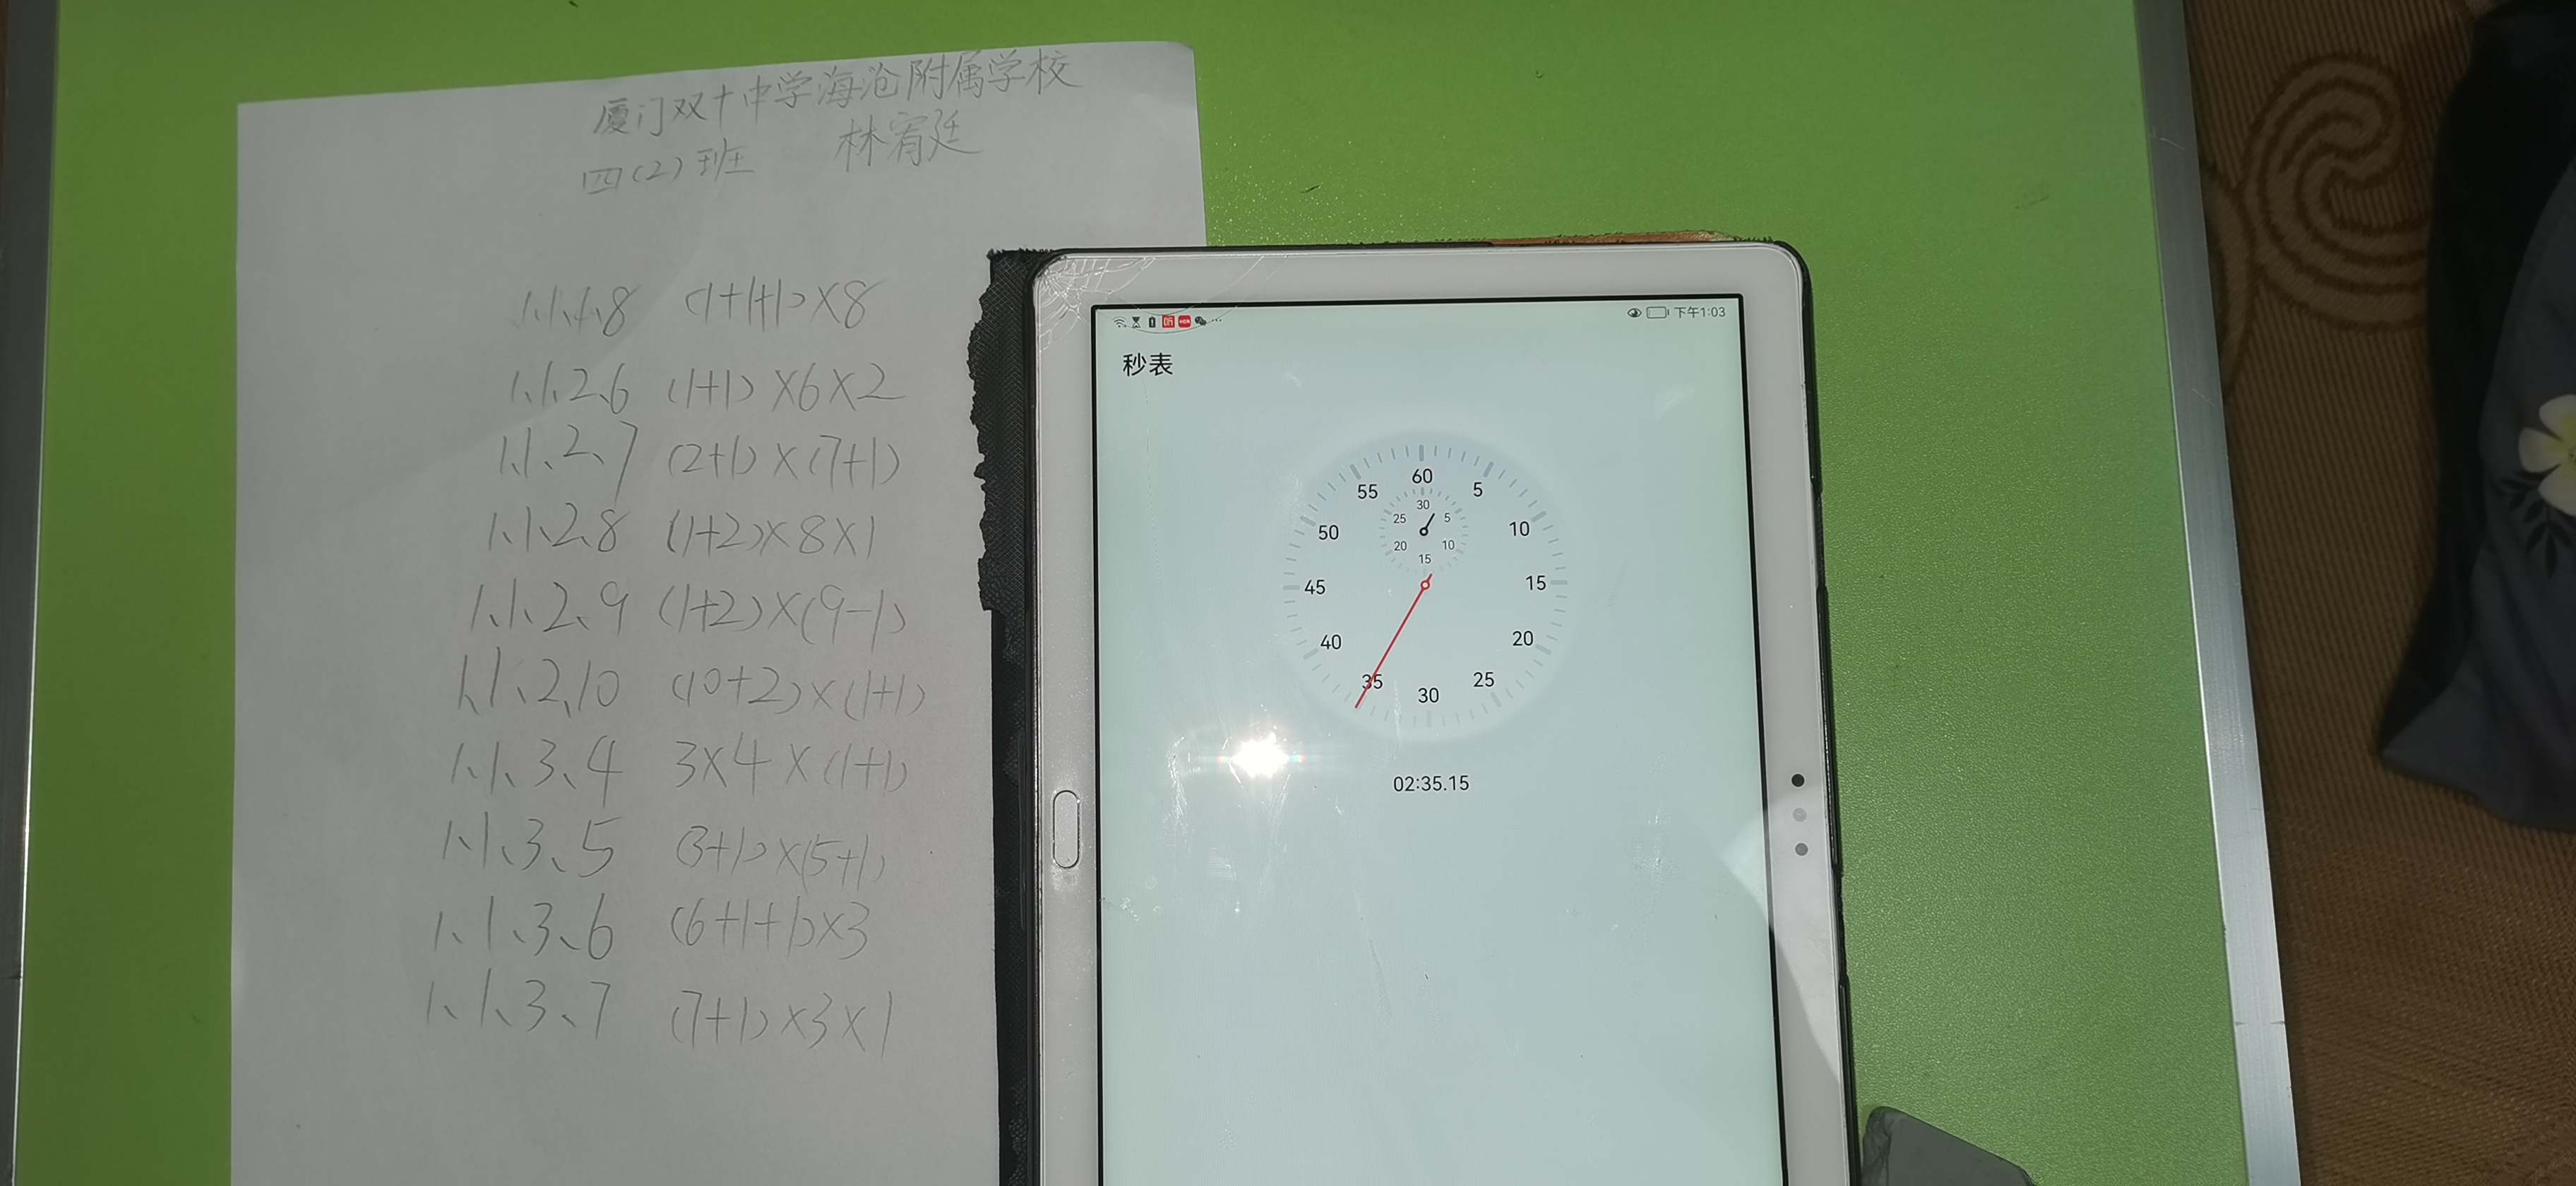 厦门双十中学海沧附属学校
四(2)班 林宥廷
1、1、1、8 (1+1+1)×8
1、1、2、6 (1+1)×6×2
1、1、2、7 (2+1)×(7+1)
1、1、2、8 (1+2)×8×1
1、1、2、9 (1+2)×(9-1)
1、1、2、10 (10+2)×(1+1)
1、1、3、4 3×4×(1+1)
1、1、3、5 (3+1)×(5+1)
1、1、3、6 (6+1+1)×3
1、1、3、7 (7+1)×3×1
下午1:03
秒表
60
55 5
50 10
45 15
40 20
35 25
30
30
25 5
20 10
15
02:35.15